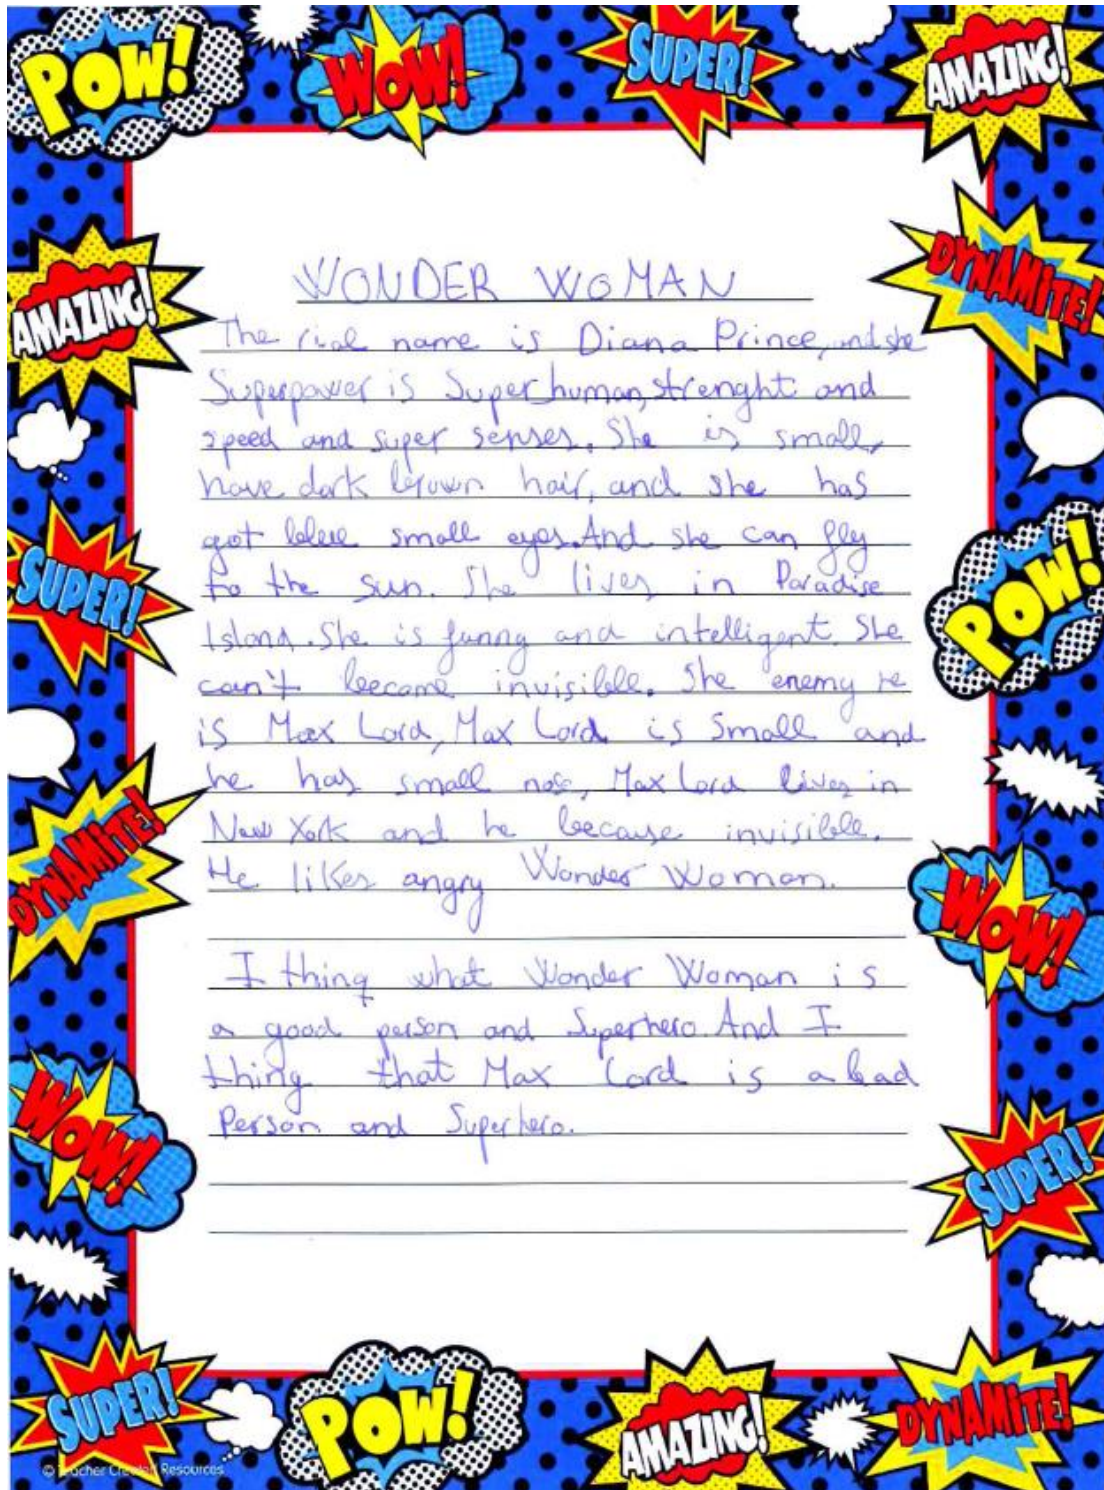 POW!
WOW!
SUPER!
AMAZING!
DYNAMITE!
AMAZING!
WONDER WOMAN
The rial name is Diana Prince, and she
Superpower is Superhuman, strenght and
speed and super senses. She is small,
have dark brown hair, and she has
got blue small eyes. And she can fly
to the sun. She lives in Paradise
Island. She is funny and intelligent. She
can't become invisible. She enemy he
is Max Lord, Max Lord is Small and
he has small nose, Max Lord lives in
New York and he because invisible.
He likes angry Wonder Woman.
I thing what Wonder Woman is
a good person and Superhero. And I
thing that Max Lord is a bad
Person and Superhero.
SUPER!
POW!
DYNAMITE!
WOW!
WOW!
SUPER!
SUPER!
POW!
AMAZING!
DYNAMITE!
© Teacher Created Resources